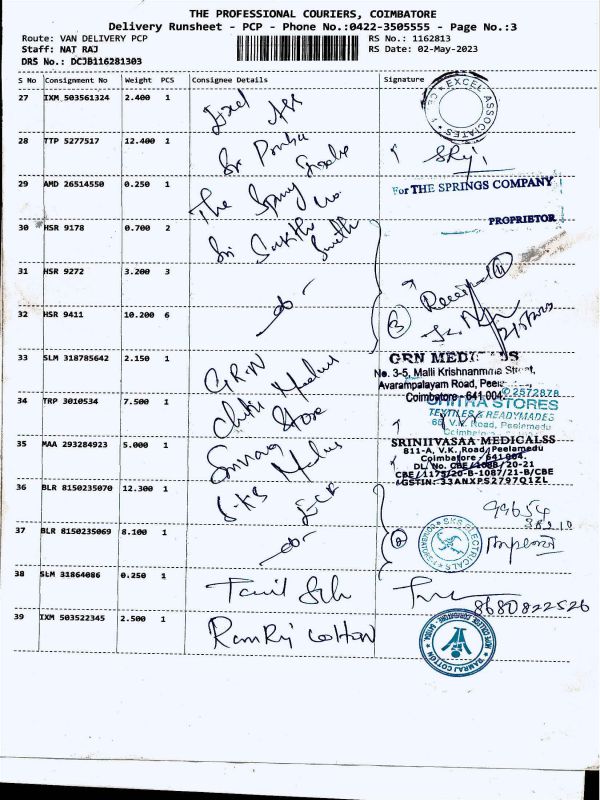 THE PROFESSIONAL COURIERS, COIMBATORE
Delivery Runsheet - PCP - Phone No.:0422-3505555 - Page No.:3
Route: VAN DELIVERY PCP RS No.: 1162813
Staff: NAT RAJ RS Date: 02-May-2023
DRS No.: DCJB116281303
S No Consignment No Weight PCS Consignee Details Signature
27 IXM 503561324 2.400 1 Excel
EXCEL ASSOCIATES
28 TTP 5277517 12.400 1 Sri
29 AMD 26514550 0.250 1 The Spring Co.
For THE SPRINGS COMPANY
PROPRIETOR
30 HSR 9178 0.700 2 Sri Sakthi
31 HSR 9272 3.200 3
Received
32 HSR 9411 10.200 6 do
33 SLM 318785642 2.150 1 GRN
GRN MEDICALS
No. 3-5, Malli Krishnamma Street,
Avarampalayam Road,
Coimbatore - 641 004. 2572878
34 TRP 3010534 7.500 1 Store
CHITRA STORES
TEXTILES & READYMADES
V.K. Road, Peelamedu
Coimbatore
35 MAA 293284923 5.000 1
SRINIIVASAA MEDICALSS
811-A, V.K. Road, Peelamedu
Coimbatore - 641 004.
DL. No. CBE /1088/20-21
CBE/1175/20-B-1087/21-B/CBE
GSTIN: 33ANXPS2797Q1ZL
36 BLR 8150235070 12.300 1 S.K.S
37 BLR 8150235069 8.100 1 do
SKS ELECTRICALS
38 SLM 31864086 0.250 1 Tamil
8680822526
39 IXM 503522345 2.500 1 RamRaj Cotton
RAMRAJ COTTON